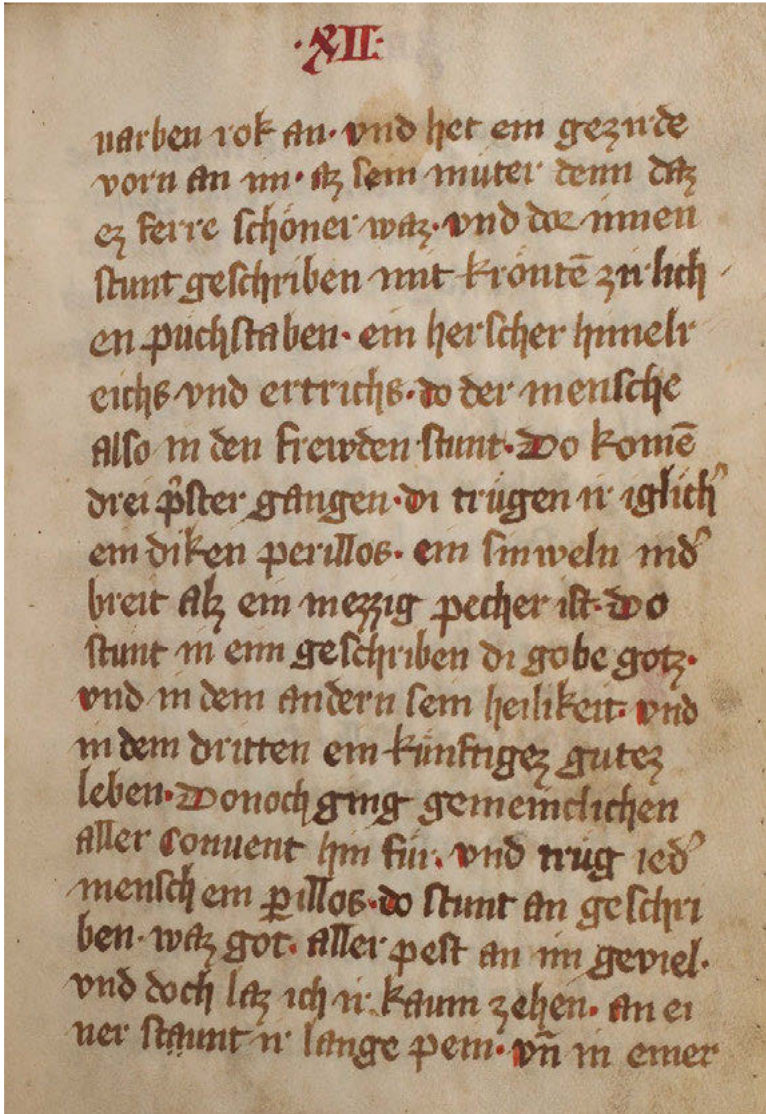 ·XII·
varben rok an· vnd het ein gezirde
vorn an im· alz sein muter denn daz
ez ferre schöner waz· vnd dor innen
stunt geschriben mit krontē zirlich
en puchstaben· ein herscher himelr
eichs vnd ertrichs· do der mensche
also in den frewden stunt· Do komē
drei pͥster gangen· di trugen ir iglich᾽
ein diken perillos· ein sinweln nid᾽
breit alz ein mezzig pecher ist· do
stunt in eim geschriben di gobe gotz·
vnd in dem andern sein heilikeit· vnd
in dem dritten ein künftigez gutez
leben· Donoch ging gemeinclichen
aller Conuent hin für· vnd trug ied᾽
mensch ein ꝑillos· do stunt an geschri
ben· waz got· aller pest an im geviel·
vnd doch laz ich ir kaum zehen· an ei
ner staunt ir lange pein· vn̄ in einer